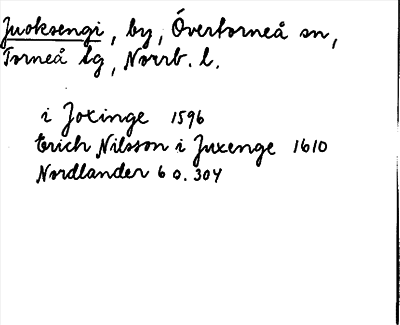 Juoksengi, by, Övertorneå sn,
Torneå tg, Norrb. l.
i Joxinge 1596
Erich Nilsson i Juxenge 1610
Nordlander 6 o. 304